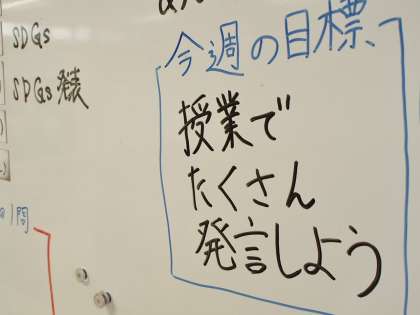 SDGs
SDGs発表
今週の目標
授業で
たくさん
発言しよう